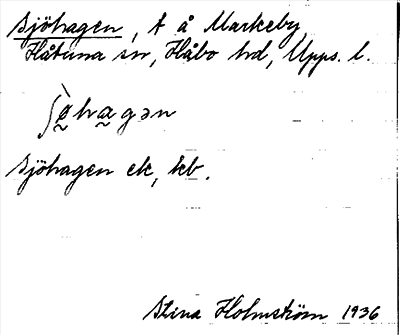 Sjöhagen, t å Markeby,
Håtuna sn, Håbo hd, Upps. l.
ʃø̀hagən
Sjöhagen ek, kb.
Stina Holmström 1936